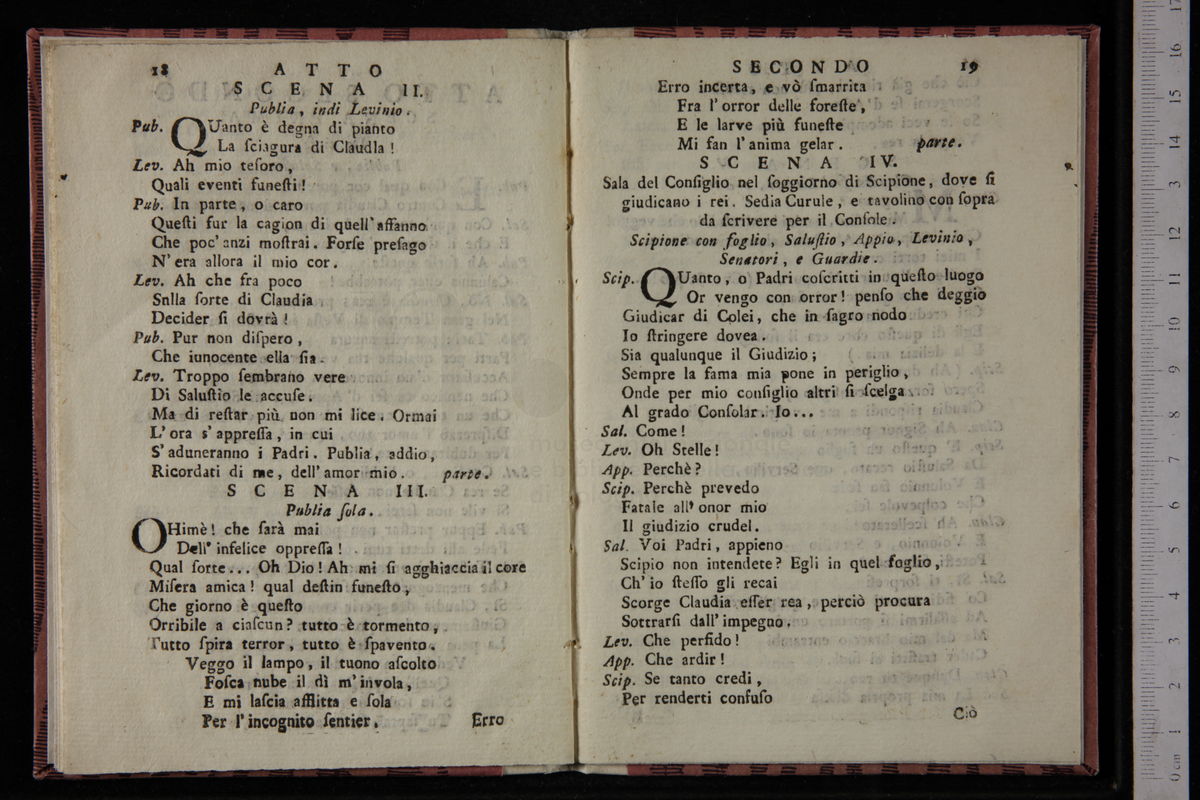 18 ATTO
SCENA II.
Publia, indi Levinio.
Pub. QUanto è degna di pianto
La ſciagura di Claudla!
Lev. Ah mio teſoro,
Quali eventi funeſti!
Pub. In parte, o caro
Queſti fur la cagion di quell' affanno
Che poc' anzi moſtrai. Forſe preſago
N' era allora il mio cor.
Lev. Ah che fra poco
Snlla ſorte di Claudia
Decider ſi dovrà!
Pub. Pur non diſpero,
Che iunocente ella ſia.
Lev. Troppo ſembrano vere
Di Saluſtio le accuſe.
Ma di reſtar più non mi lice. Ormai
L' ora s' appreſſa, in cui
S' aduneranno i Padri. Publia, addio,
Ricordati di me, dell' amor mio. parte.
SCENA III.
Publia ſola.
OHimè! che ſarà mai
Dell' infelice oppreſſa!
Qual ſorte... Oh Dio! Ah mi ſi agghiaccia il core
Miſera amica! qual deſtin funeſto,
Che giorno è queſto
Orribile a ciaſcun? tutto è tormento,
Tutto ſpira terror, tutto è ſpavento.
Veggo il lampo, il tuono aſcolto
Foſca nube il dì m' invola,
E mi laſcia afflitta e ſola
Per l' incognito ſentier.
Erro
SECONDO 19
Erro incerta, e vò ſmarrita
Fra l' orror delle foreſte,
E le larve più funeſte
Mi fan l' anima gelar. parte.
SCENA IV.
Sala del Conſiglio nel ſoggiorno di Scipione, dove ſi
giudicano i rei. Sedia Curule, e tavolino con ſopra
da ſcrivere per il Conſole.
Scipione con foglio, Saluſtio, Appio, Levinio,
Senatori, e Guardie.
Scip. QUanto, o Padri coſcritti in queſto luogo
Or vengo con orror! penſo che deggio
Giudicar di Colei, che in ſagro nodo
Io ſtringere dovea.
Sia qualunque il Giudizio;
Sempre la fama mia pone in periglio,
Onde per mio conſiglio altri ſi ſcelga
Al grado Conſolar. Io...
Sal. Come!
Lev. Oh Stelle!
App. Perchè?
Scip. Perchè prevedo
Fatale all' onor mio
Il giudizio crudel.
Sal. Voi Padri, appieno
Scipio non intendete? Egli in quel foglio,
Ch' io ſteſſo gli recai
Scorge Claudia eſſer rea, perciò procura
Sottrarſi dall' impegno.
Lev. Che perfido!
App. Che ardir!
Scip. Se tanto credi,
Per renderti confuſo
Ciò